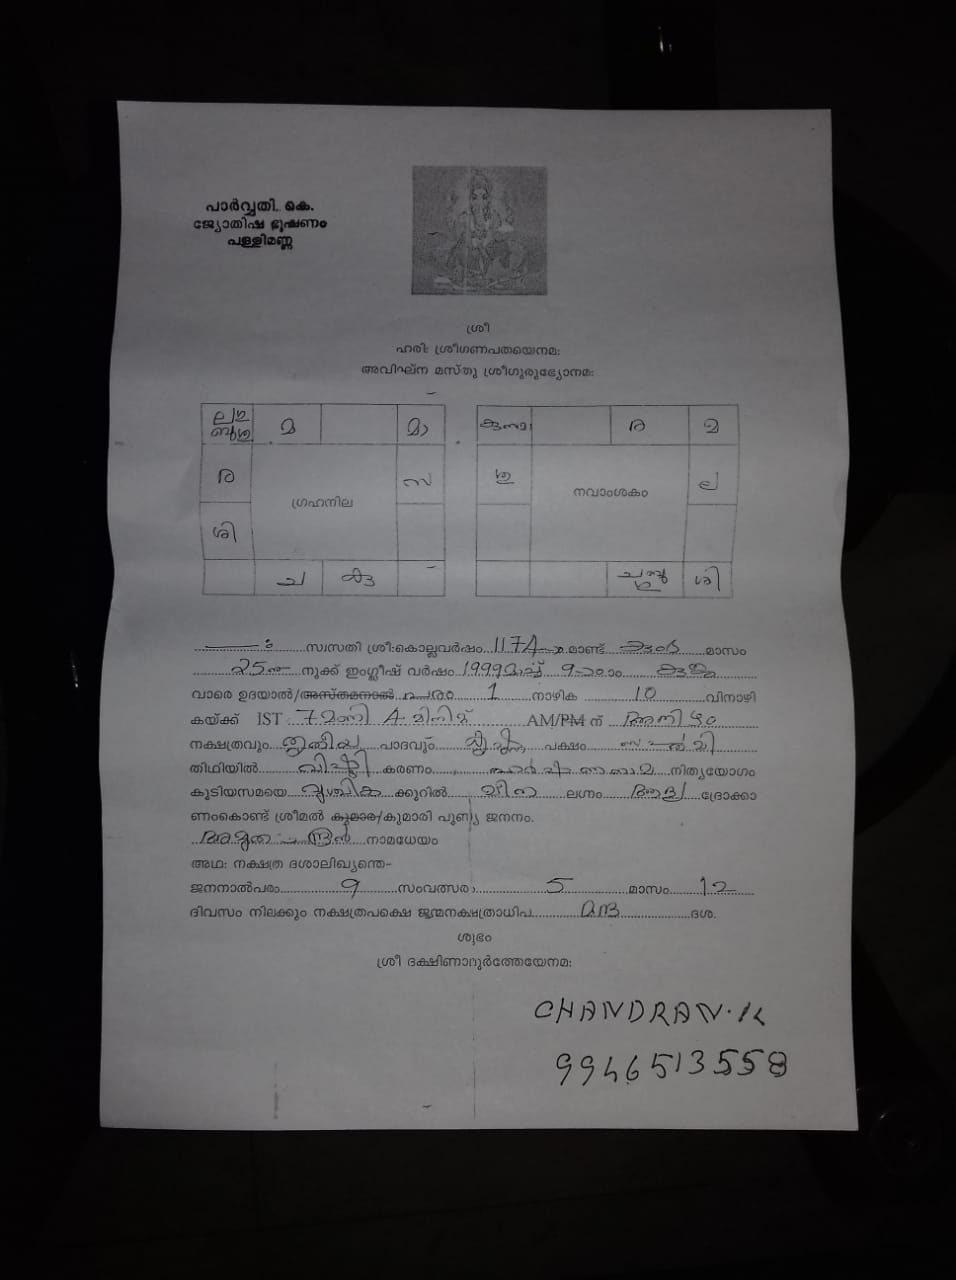 പാർവ്വതി. കെ.
ജ്യോതിഷ ഭൂഷണം
പള്ളിമണ്ണ
ശ്രീ
ഹരി: ശ്രീഗണപതയെനമ:
അവിഘ്ന മസ്തു ശ്രീഗുരുഭ്യോനമ:
ല ഗു മ മാ
ബു ശു
ര സ
ഗ്രഹനില
ശി
ച കു
ര മ
ഗു ല
നവാംശകം
ശി
സ്വസതി ശ്രീ:കൊല്ലവർഷം 1174 ..മാണ്ട് കുംഭ ..മാസം
25 ..നുക്ക് ഇംഗ്ലീഷ് വർഷം 1999 മാർച്ച് 9 ..ാം
വാരെ ഉദയാൽ/അസ്തമനാൽ പരം 1 നാഴിക 10 വിനാഴി
കയ്ക്ക് IST 7 മണി 4 മിനിട്ട് AM/PM ന് അനിഴം
നക്ഷത്രവും തൃതീയ പാദവും പക്ഷം സപ്തമി
തിഥിയിൽ വിഷ്ടി കരണം ഹർഷണ നാമ നിത്യയോഗം
കൂടിയസമയെ വൃശ്ചിക ക്കൂറിൽ മീന ലഗ്നം ആദ്യ ദ്രേക്കാ
ണംകൊണ്ട് ശ്രീമൽ കുമാര/കുമാരി പുണ്യ ജനനം.
നാമധേയം
അഥ: നക്ഷത്ര ദശാലിഖ്യന്തെ-
ജനനാൽപരം 9 സംവത്സര 5 മാസം 12
ദിവസം നിലക്കും നക്ഷത്രപക്ഷെ ജന്മനക്ഷത്രാധിപ മന്ദ ദശ.
ശുഭം
ശ്രീ ദക്ഷിണാമൂർത്തേയേനമ:
CHANDRAN.K
9946513558